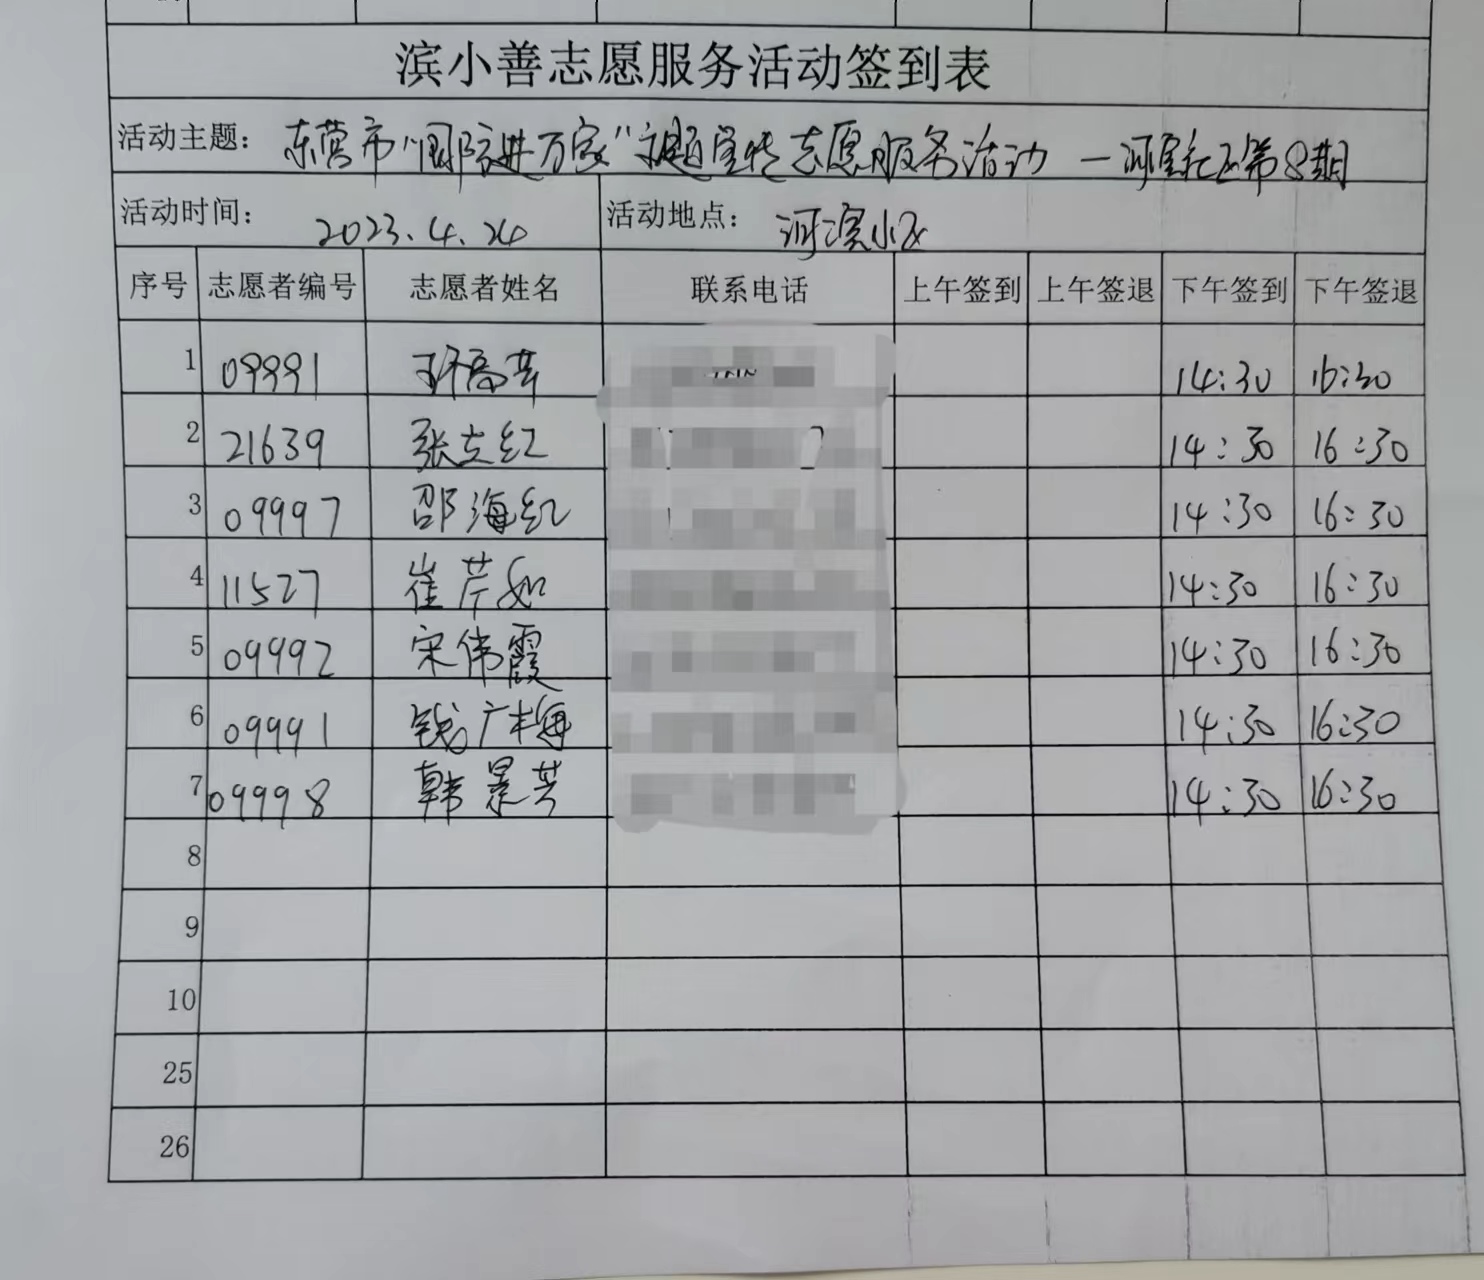 滨小善志愿服务活动签到表
活动主题： 东营市"国防进万家"主题宣传志愿服务活动 — 河滨社区第8期
活动时间： 2023.4.24 活动地点： 河滨小区
序号 志愿者编号 志愿者姓名 联系电话 上午签到 上午签退 下午签到 下午签退
1 09991 14:30 16:30
2 21639 张立红 14:30 16:30
3 09997 邵海红 14:30 16:30
4 11527 崔芹如 14:30 16:30
5 09992 宋伟霞 14:30 16:30
6 09991 钱广梅 14:30 16:30
7 09998 韩景芳 14:30 16:30
8
9
10
25
26